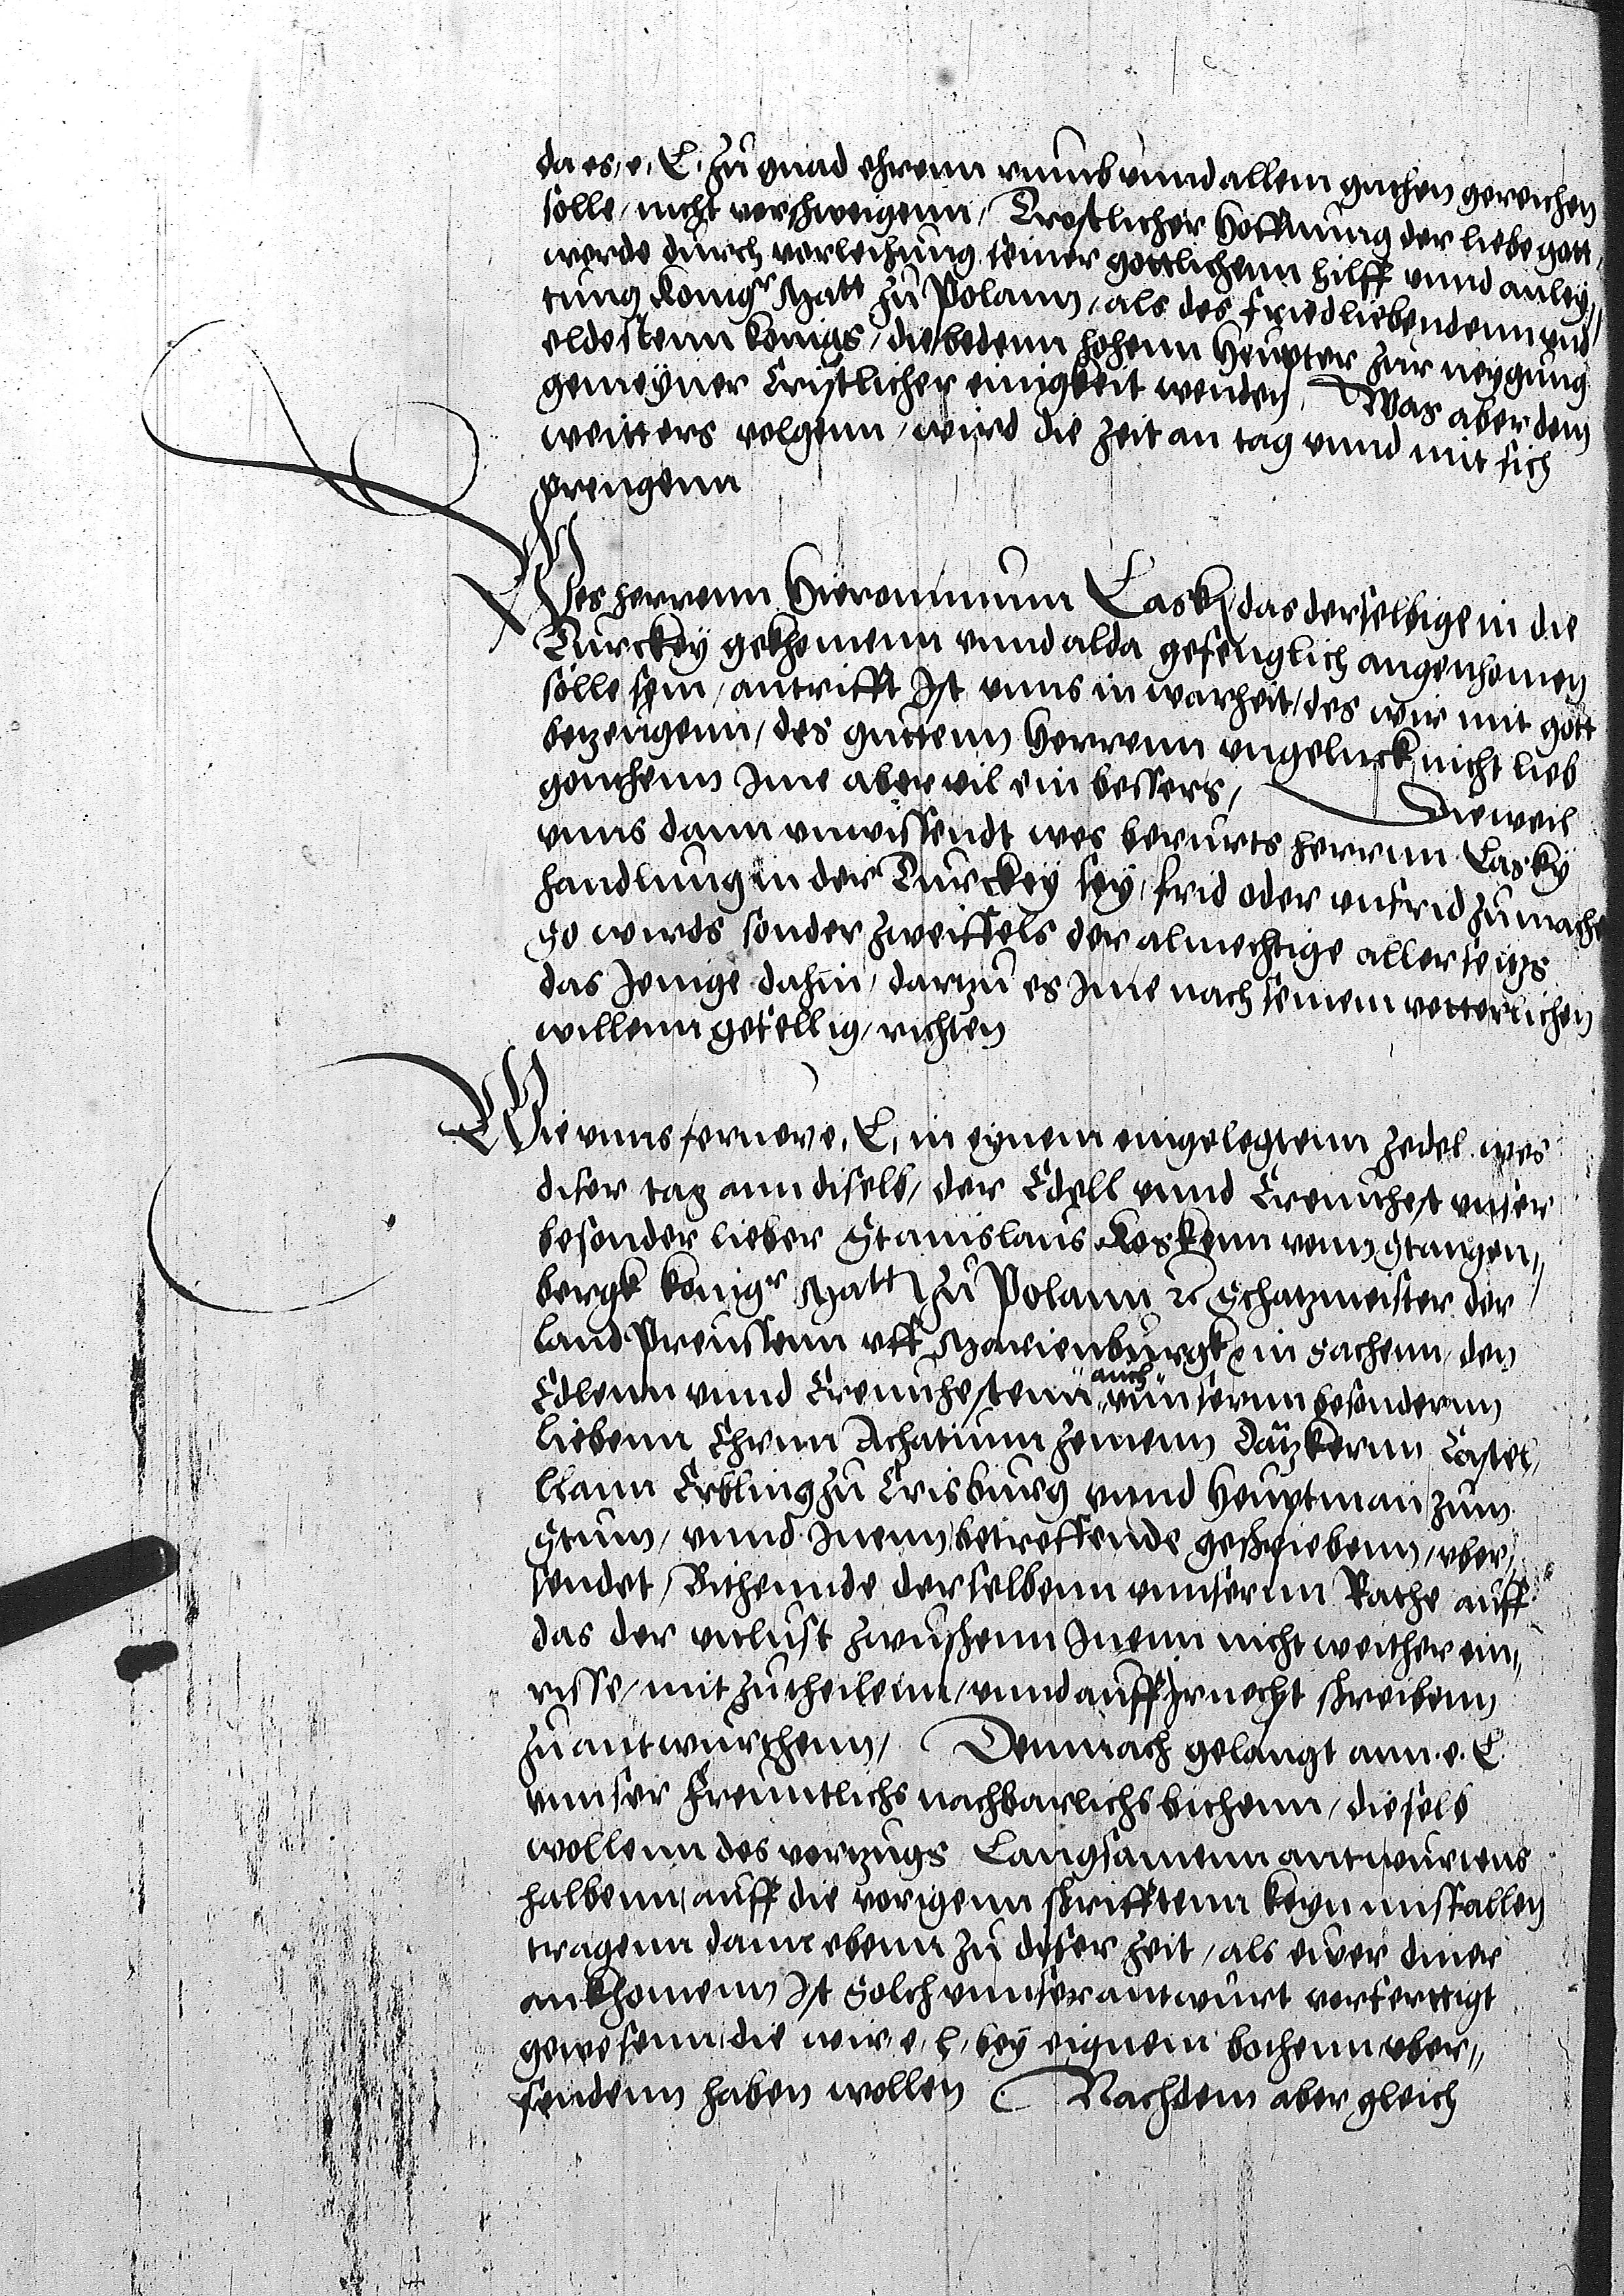 da es, e. L. zu gnad ehrenn rumb vnnd allem guthen gereichen
solle, nicht verschweigenn, Trostlicher Hoffnung der liebe gott,
werde durch verleihung seiner gottlichenn hilff vnnd anley,,
tung Konigr Matt zu Polann, als des friedliebendenn vnd
eldestenn konigs, die bedenn hohenn Heupter zur neygung
gemeyner Cristlicher einigkeit wenden, Was aber dem
weitters volgenn, wird die zeit an tag vnnd mit sich
prengenn
Des herrenn Hieronimum Lasky das derselbige in die
Turckey gekhomenn vnnd alda gefenglich angenhomen
solle sein, antrifft Ist vnns in warheit, des wir mit gott
betzeugenn, des guttenn Herrenn vngeluck nicht lieb
gonthenn Ime aber vil ein bessers, Dieweil
vnns dann vnwissendt wes berurts herrnn Lasky
handlung in der Turckey sey, frid oder vnfrid zumache
So wirds sonder zweiffels der almechtige allerseitzs
das Jenige dahin, dartzu es Ime nach seinem vetterlichen
willenn gefellig, richten
Wie vnns ferner e. L. in eynem eingelegtenn zedel wes
diser tag ann diselb, der Edell vnnd Ernuhest vnser
besonder lieber Stanislaus Koskenn vonn Stangen,,
bergk konigr Matt zu Polann etc Schatzmeister der
land Preussenn vff Marienburgk in sachenn, den
Edlenn vnnd Ernuhestenn auch vnnsernn besondernn
liebenn Ehrnn Achatium Zemenn Dantzkernn Castel,
llann Erbling zu Crisburg vnnd Heuptman zum
Stum, vnnd Inenn betreffende geschriebenn, vber,,
sendet, Bithennde derselbenn vnnsernn Rathe auff
das der vnlust zwuschenn Inenn nicht weither ein,,
risse, mit zutheilenn, vnnd auff Ir necht schreibenn
zuantwurthenn, Demnach gelangt ann e. L.
vnnser freuntlichs nachbarlichs bithenn, dieselb
wollenn des vertzugs Langsamenn antwurtens
halbenn, auff die vorigenn schrifftenn keyn missfallen
tragenn dann ebenn zu diser zeit, als ewer diner
ankhomenn Ist Solch vnnser antwurt verferttigt
gewesenn die wir e. l. bey eignem bothenn vber,,
sendenn haben wollen Nachdem aber gleich